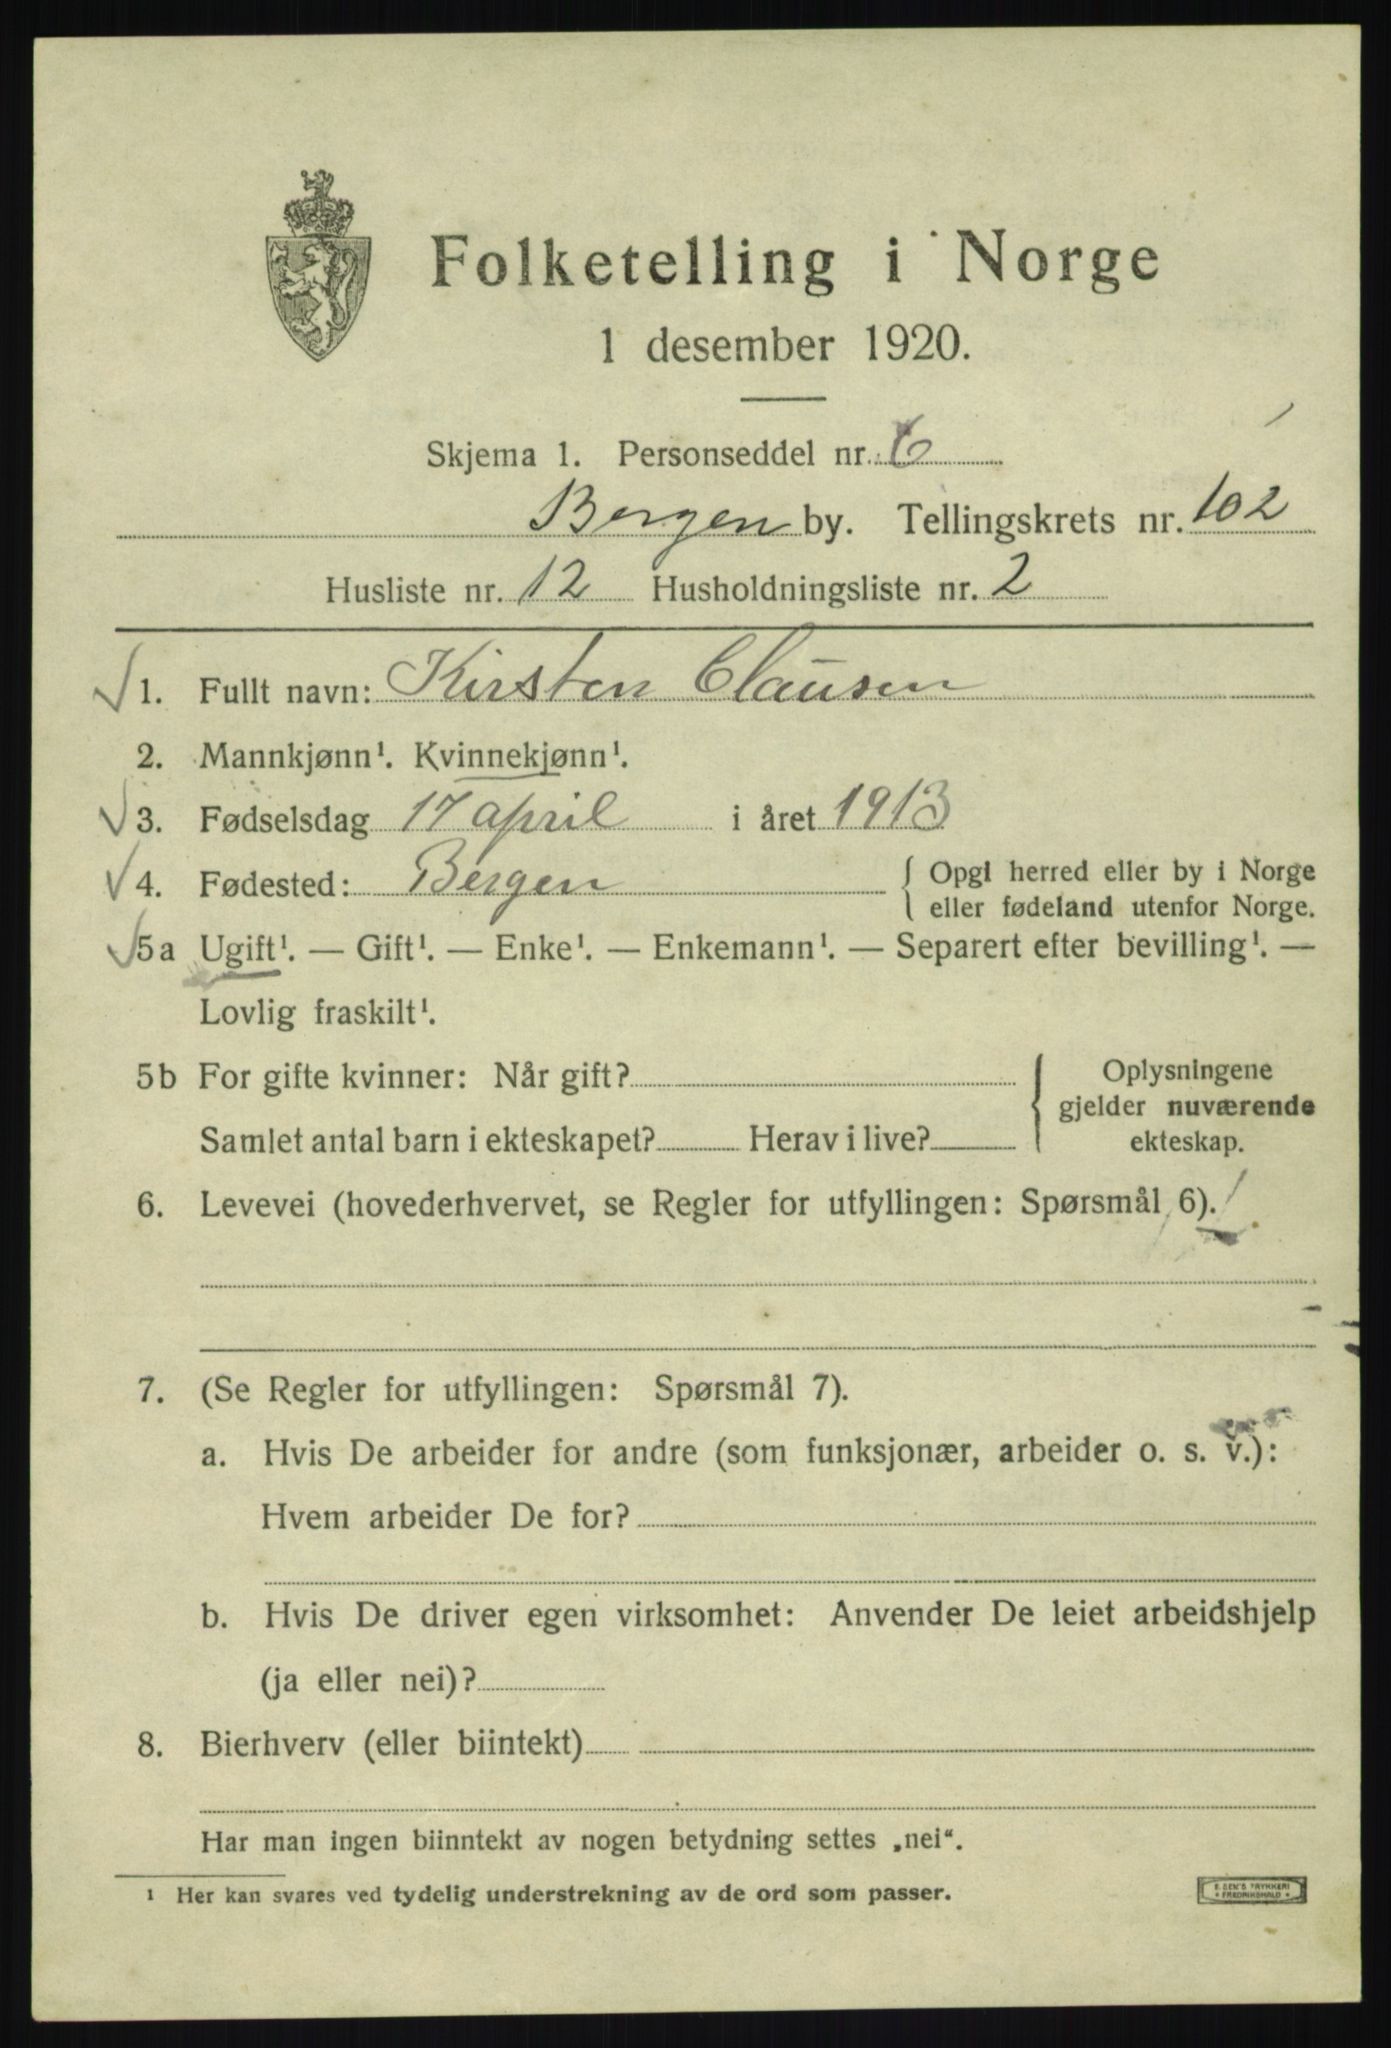 Folketelling i Norge
1 desember 1920.
Skjema 1. Personseddel nr. 6
Bergen by. Tellingskrets nr. 102
Husliste nr. 12 Husholdningsliste nr. 2
1. Fullt navn: Kirsten Clausen
2. Mannkjønn¹. Kvinnekjønn¹.
3. Fødselsdag 17 april i året 1913
4. Fødested: Bergen { Opgi herred eller by i Norge
eller fødeland utenfor Norge.
5a Ugift¹. — Gift¹. — Enke¹. — Enkemann¹. — Separert efter bevilling¹. —
Lovlig fraskilt¹.
5b For gifte kvinner: Når gift? { Oplysningene
gjelder nuværende
Samlet antal barn i ekteskapet? Herav i live? ekteskap.
6. Levevei (hovederhvervet, se Regler for utfyllingen: Spørsmål 6).
7. (Se Regler for utfyllingen: Spørsmål 7).
a. Hvis De arbeider for andre (som funksjonær, arbeider o. s. v.):
Hvem arbeider De for?
b. Hvis De driver egen virksomhet: Anvender De leiet arbeidshjelp
(ja eller nei)?
8. Bierhverv (eller biintekt)
Har man ingen biinntekt av nogen betydning settes „nei“.
¹ Her kan svares ved tydelig understrekning av de ord som passer.
TRYKKERI
FREDRIKSHALD